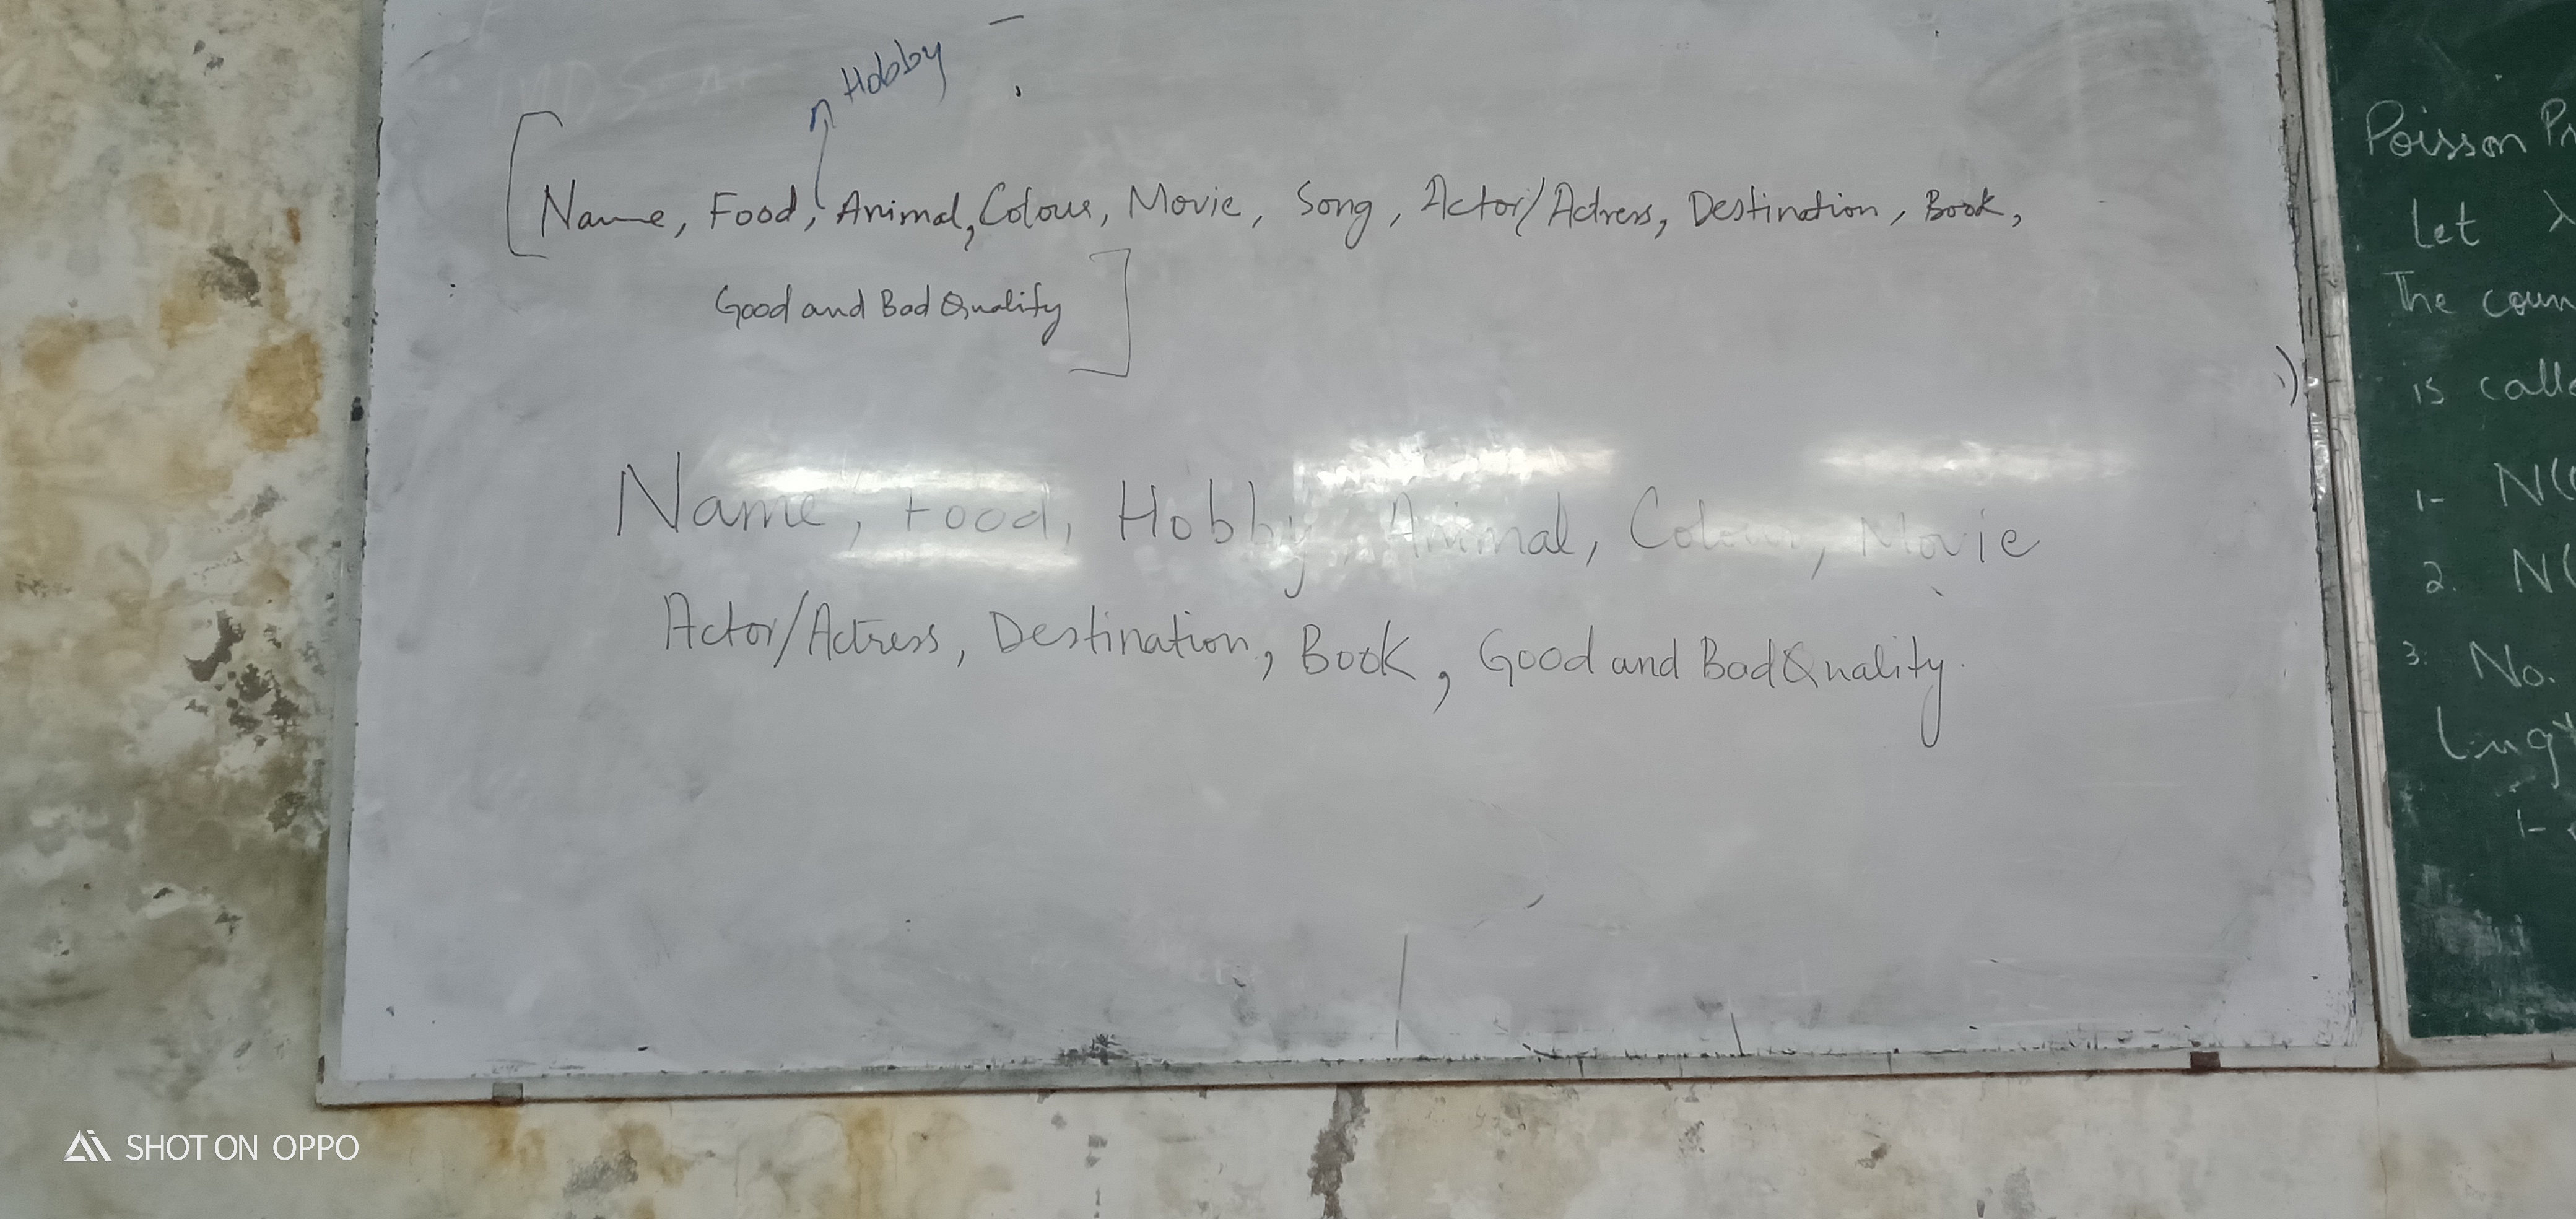 Hobby
[Name, Food, Animal, Colour, Movie, Song, Actor/Actress, Destination, Book,
Good and Bad Quality]
Name, Food, Hobby, Animal, Colour, Movie
Actor/Actress, Destination, Book, Good and Bad Quality.
Poisson Pr
Let λ
The coun
is calle
1- N(
2. N(
3. No.
1-
SHOT ON OPPO